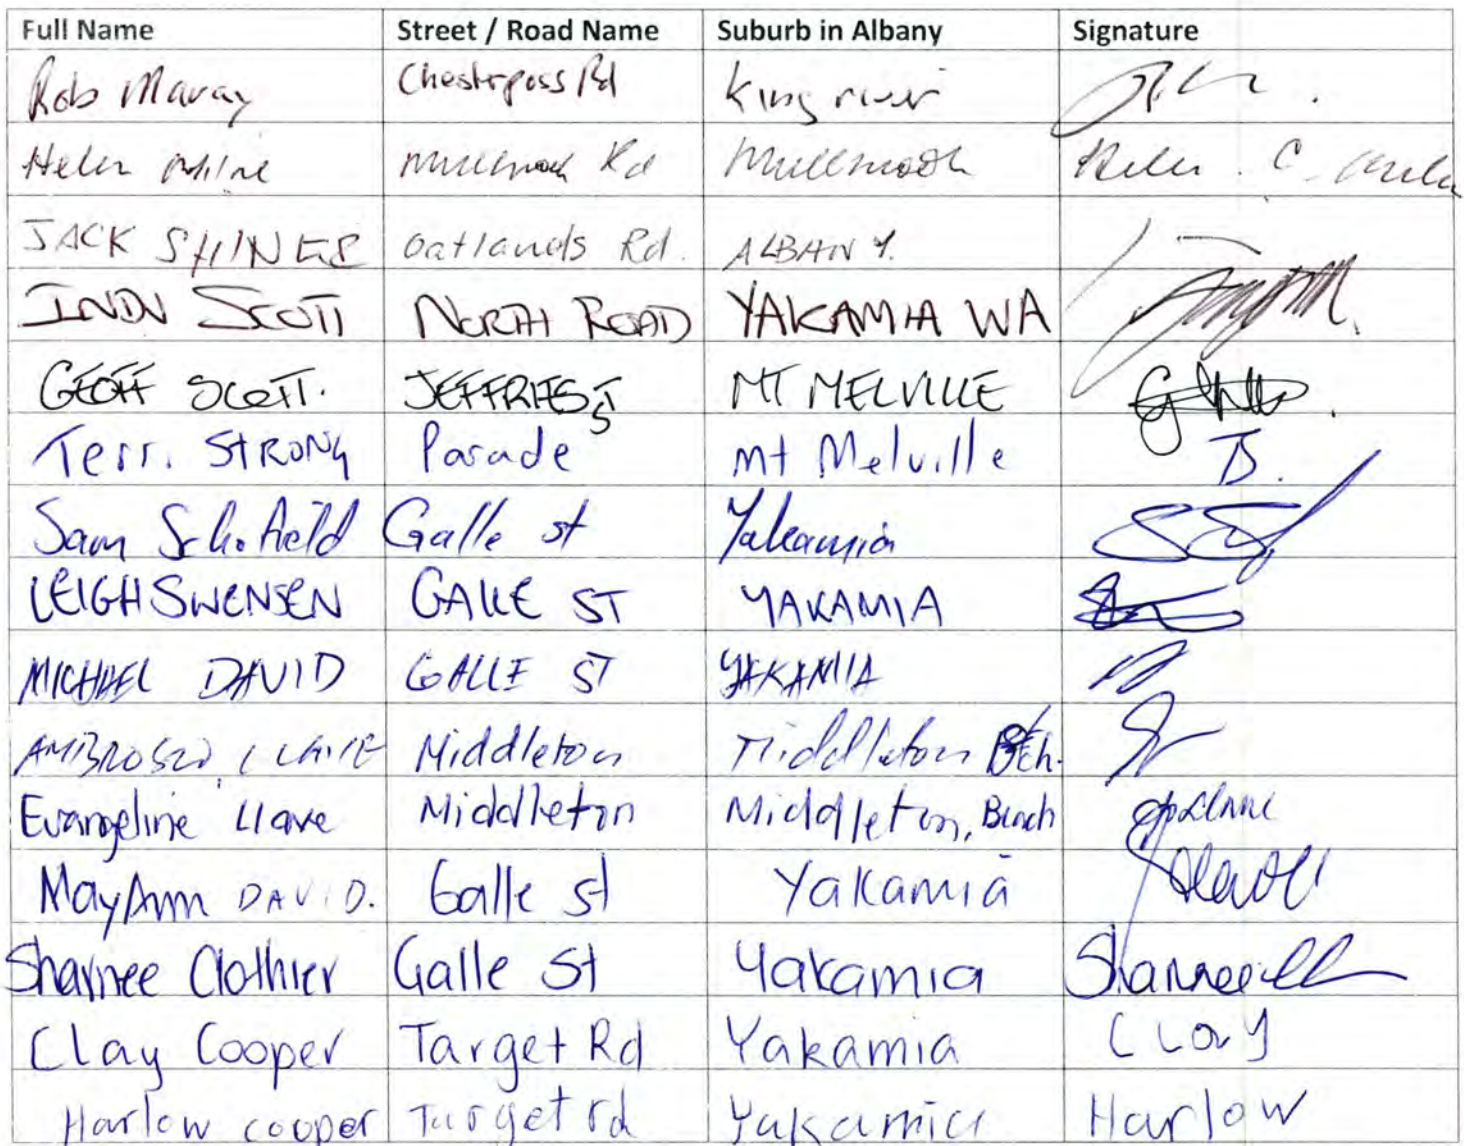 Full Name Street / Road Name Suburb in Albany Signature
Rob Maray Chesterpass Rd King river
Helen Milne Rd Helen C. Milne
JACK SHINER Oatlands Rd. ALBANY.
INDY SCOTT NORTH ROAD YAKAMIA WA
GEOFF SCOTT. JEFFRIES ST MT MELVILLE
Terri STRONG Parade Mt Melville TS.
Sam Schofield Galle st Yakamia
LEIGH SWENSEN GALLE ST YAKAMIA
MICHAEL DAVID GALLE ST YAKAMIA
AMBROSIO LLAVE Middleton Middleton Bch.
Evangeline Llave Middleton Middleton, Beach
MayAnn DAVID. Galle st Yakamia
Sharnee Clothier Galle St Yakamia Sharnee
Clay Cooper Target Rd Yakamia Clay
Harlow cooper Target rd Yakamia Harlow